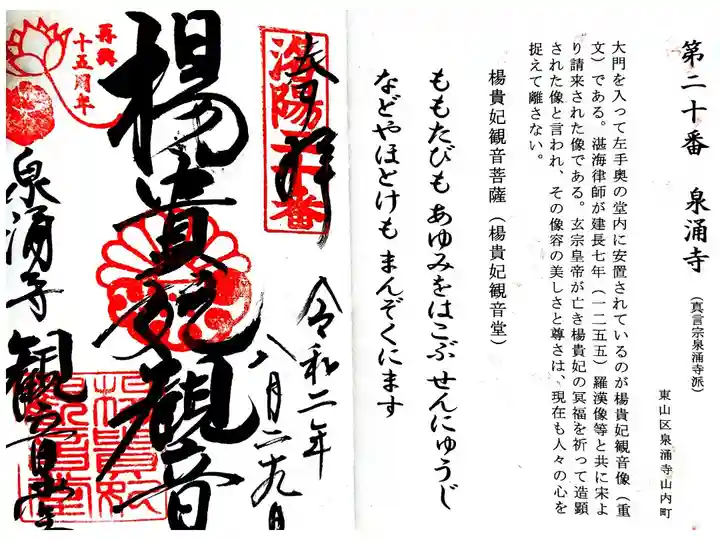 第二十番 泉涌寺
（真言宗泉涌寺派）
東山区泉涌寺山内町
大門を入って左手奥の堂内に安置されているのが楊貴妃観音像（重
文）である。湛海律師が建長七年（一二五五）羅漢像等と共に宋よ
り請来された像である。玄宗皇帝が亡き楊貴妃の冥福を祈って造顕
された像と言われ、その像容の美しさと尊さは、現在も人々の心を
捉えて離さない。
楊貴妃観音菩薩（楊貴妃観音堂）
ももたびも あゆみをはこぶ せんにゅうじ
などやほとけも まんぞくにます
奉拝
洛陽二十番
令和二年
八月二十九日
楊貴妃観音
再興
十五周年
泉涌寺 観音堂